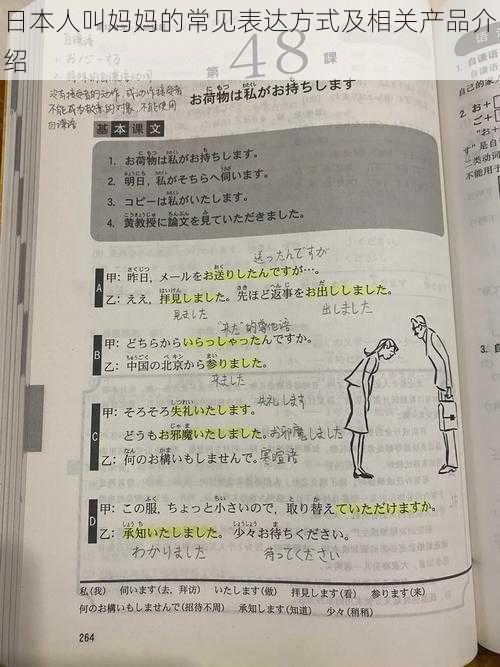 日本人叫妈妈的常见表达方式及相关产品介
绍
第48課
お荷物は私がお持ちします
基本课文
1. お荷物は私がお持ちします。
2. 明日，私がそちらへ伺います。
3. コピーは私がいたします。
4. 黄教授に論文を見ていただきました。
送ったんですが
A
甲：昨日，メールをお送りしたんですが…。
乙：ええ，拝見しました。先ほど返事をお出ししました。
見ました
出しました
B
甲：どちらからいらっしゃったんですか。
乙：中国の北京から参りました。
来ました
失礼します
C
甲：そろそろ失礼いたします。
どうもお邪魔いたしました。お邪魔しました
乙：何のお構いもしませんで。寒暄语
D
甲：この服，ちょっと小さいので，取り替えていただけますか。
乙：承知いたしました。少々お待ちください。
わかりました
待ってください
私(我) 伺います(去、拜访) いたします(做) 拝見します(看) 参ります(来)
何のお構いもしませんで(招待不周) 承知します(知道) 少々(稍稍)
264
1. 自谦语
自己的
2. お＋
ご＋
す"是自
一类动词
不能用于
3.